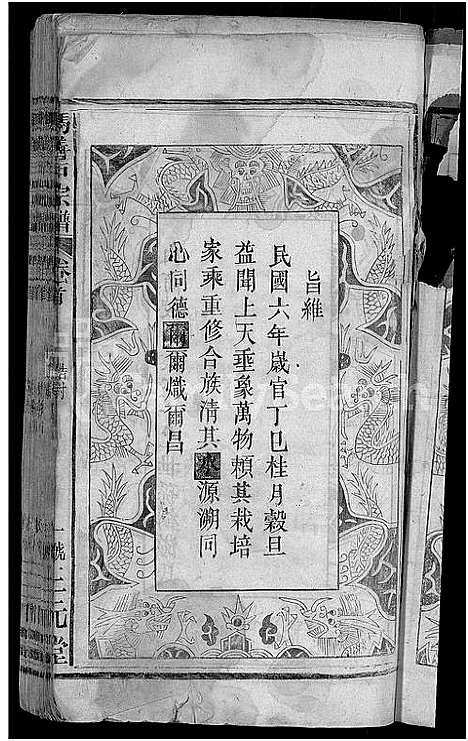 旨維
民國六年歲官丁巳桂月穀旦
益聞上天垂象萬物賴其栽培
家乘重修合族清其水源溯同
心同德爾爾熾爾昌
宗譜 卷首
誥封
三元堂